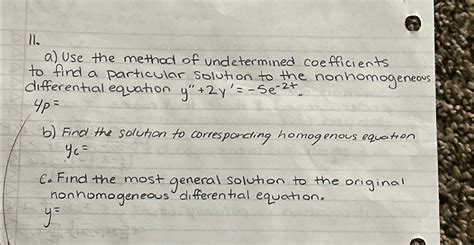 11.
a) Use the method of undetermined coefficients
to find a particular solution to the nonhomogeneous
differential equation y"+2y'=-5e^-2t.
yp=
b) Find the solution to corresponding homogenous equation
yc=
c. Find the most general solution to the original
nonhomogeneous differential equation.
y=